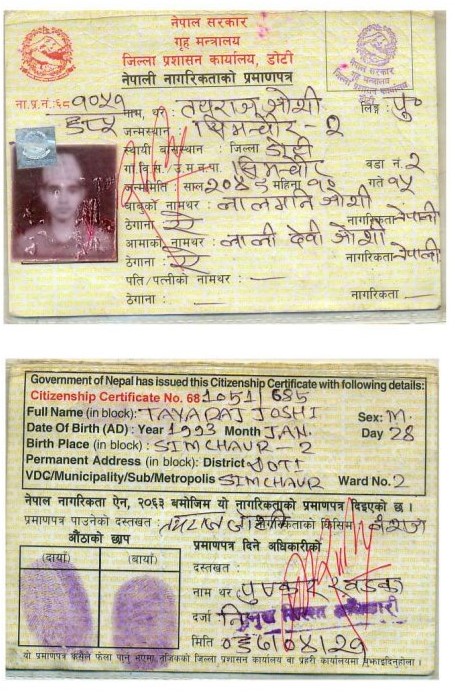 नेपाल सरकार
गृह मन्त्रालय
जिल्ला प्रशासन कार्यालय, डोटी
नेपाली नागरिकताको प्रमाणपत्र
ना.प्र.नं.: ६८ १०५१
नाम, थर : तयाराज जोशी लिङ्ग : पु०
जन्मस्थान : सिमचौर - २
स्थायी बासस्थान : जिल्ला डोटी
गा.वि.स./उ.म.न.पा. सिमचौर वडा नं. २
जन्ममिति : साल २०४९ महिना १० गते १५
बाबुको नामथर : जोशी
ठेगाना : नागरिकता नेपाली
आमाको नामथर : लाली देवी जोशी
ठेगाना : नागरिकता नेपाली
पति/पत्नीको नामथर : —
ठेगाना : — नागरिकता —
Government of Nepal has issued this Citizenship Certificate with following details:
Citizenship Certificate No. 68 1051/685
Full Name (in block): TAYARAJ JOSHI Sex: M.
Date Of Birth (AD) : Year 1993 Month JAN. Day 28
Birth Place (in block) : SIMCHAUR - 2
Permanent Address (in block): District DOTI
VDC/Municipality/Sub/Metropolis SIMCHAUR Ward No. 2
नेपाल नागरिकता ऐन, २०६३ बमोजिम यो नागरिकताको प्रमाणपत्र दिइएको छ ।
प्रमाणपत्र पाउनेको दस्तखत : नागरिकताको किसिम वंशज
औंठाको छाप प्रमाणपत्र दिने अधिकारीको
(दायाँ) (बायाँ)
दस्तखत :
नाम थर : पुष्कर खड्का
दर्जा
मिति
यो प्रमाणपत्र कसैले फेला पारेमा नजिकको जिल्ला प्रशासन कार्यालय वा प्रहरी कार्यालयमा बुझाइदिनुहोला ।